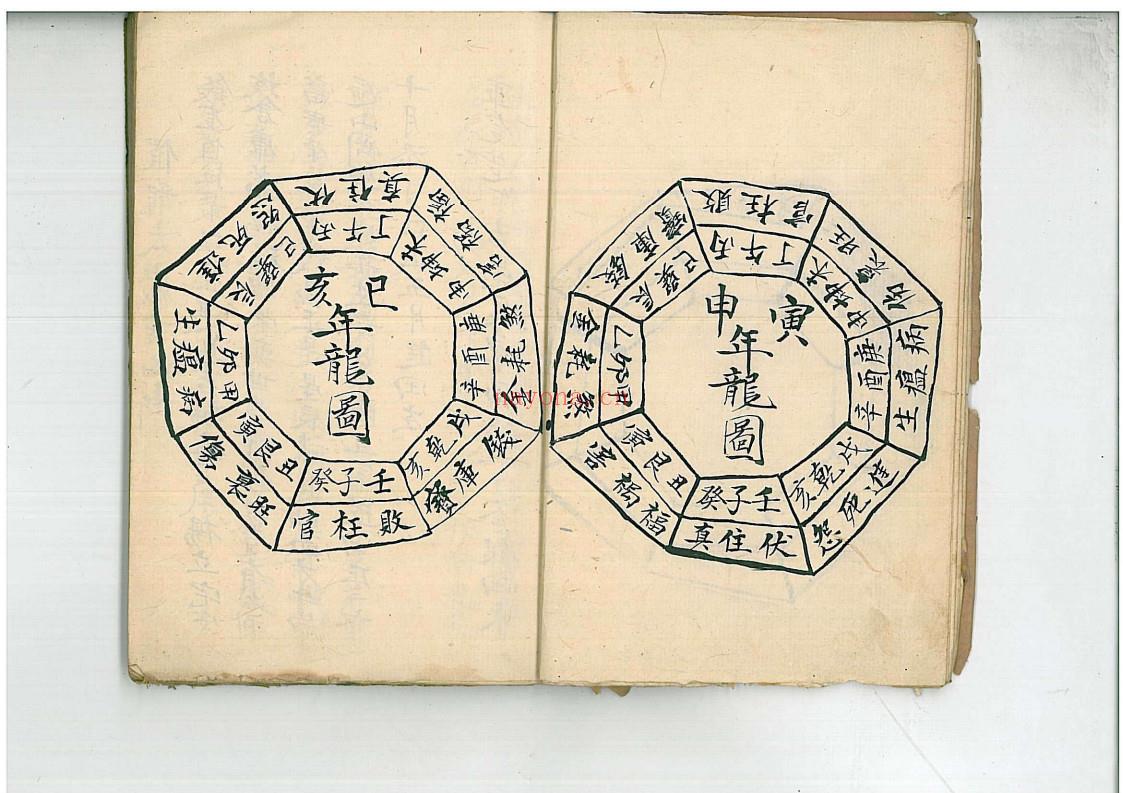 寅申
年
龍
圖
官枉敗
丁午丙
傷衰旺
申坤未
生瘟病
辛酉庚
怨死進
亥乾戌
癸子壬
真住伏
寅艮丑
害禍福
乙卯甲
金耗煞
巳巽辰
庫錢
巳亥
年
龍
圖
真住伏
丁午丙
害禍福
申坤未
金耗煞
辛酉庚
發庫錢
亥乾戌
癸子壬
官枉敗
寅艮丑
傷衰旺
乙卯甲
生瘟病
巳巽辰
怨死進